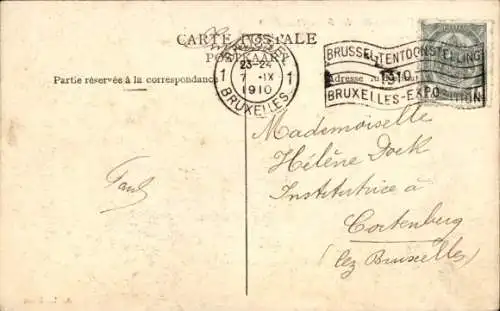 CARTE POSTALE
POSTKAART
Partie réservée à la correspondance
Adresse
BRUXELLES
23-24
1 7 - IX 1
1910
BRUXELLES
BRUSSEL-TENTOONSTELLING
1910
BRUXELLES-EXPOSITION
Paul
Mademoiselle
Hélène Dock
Institutrice à
Cortenberg
(lez Bruxelles)